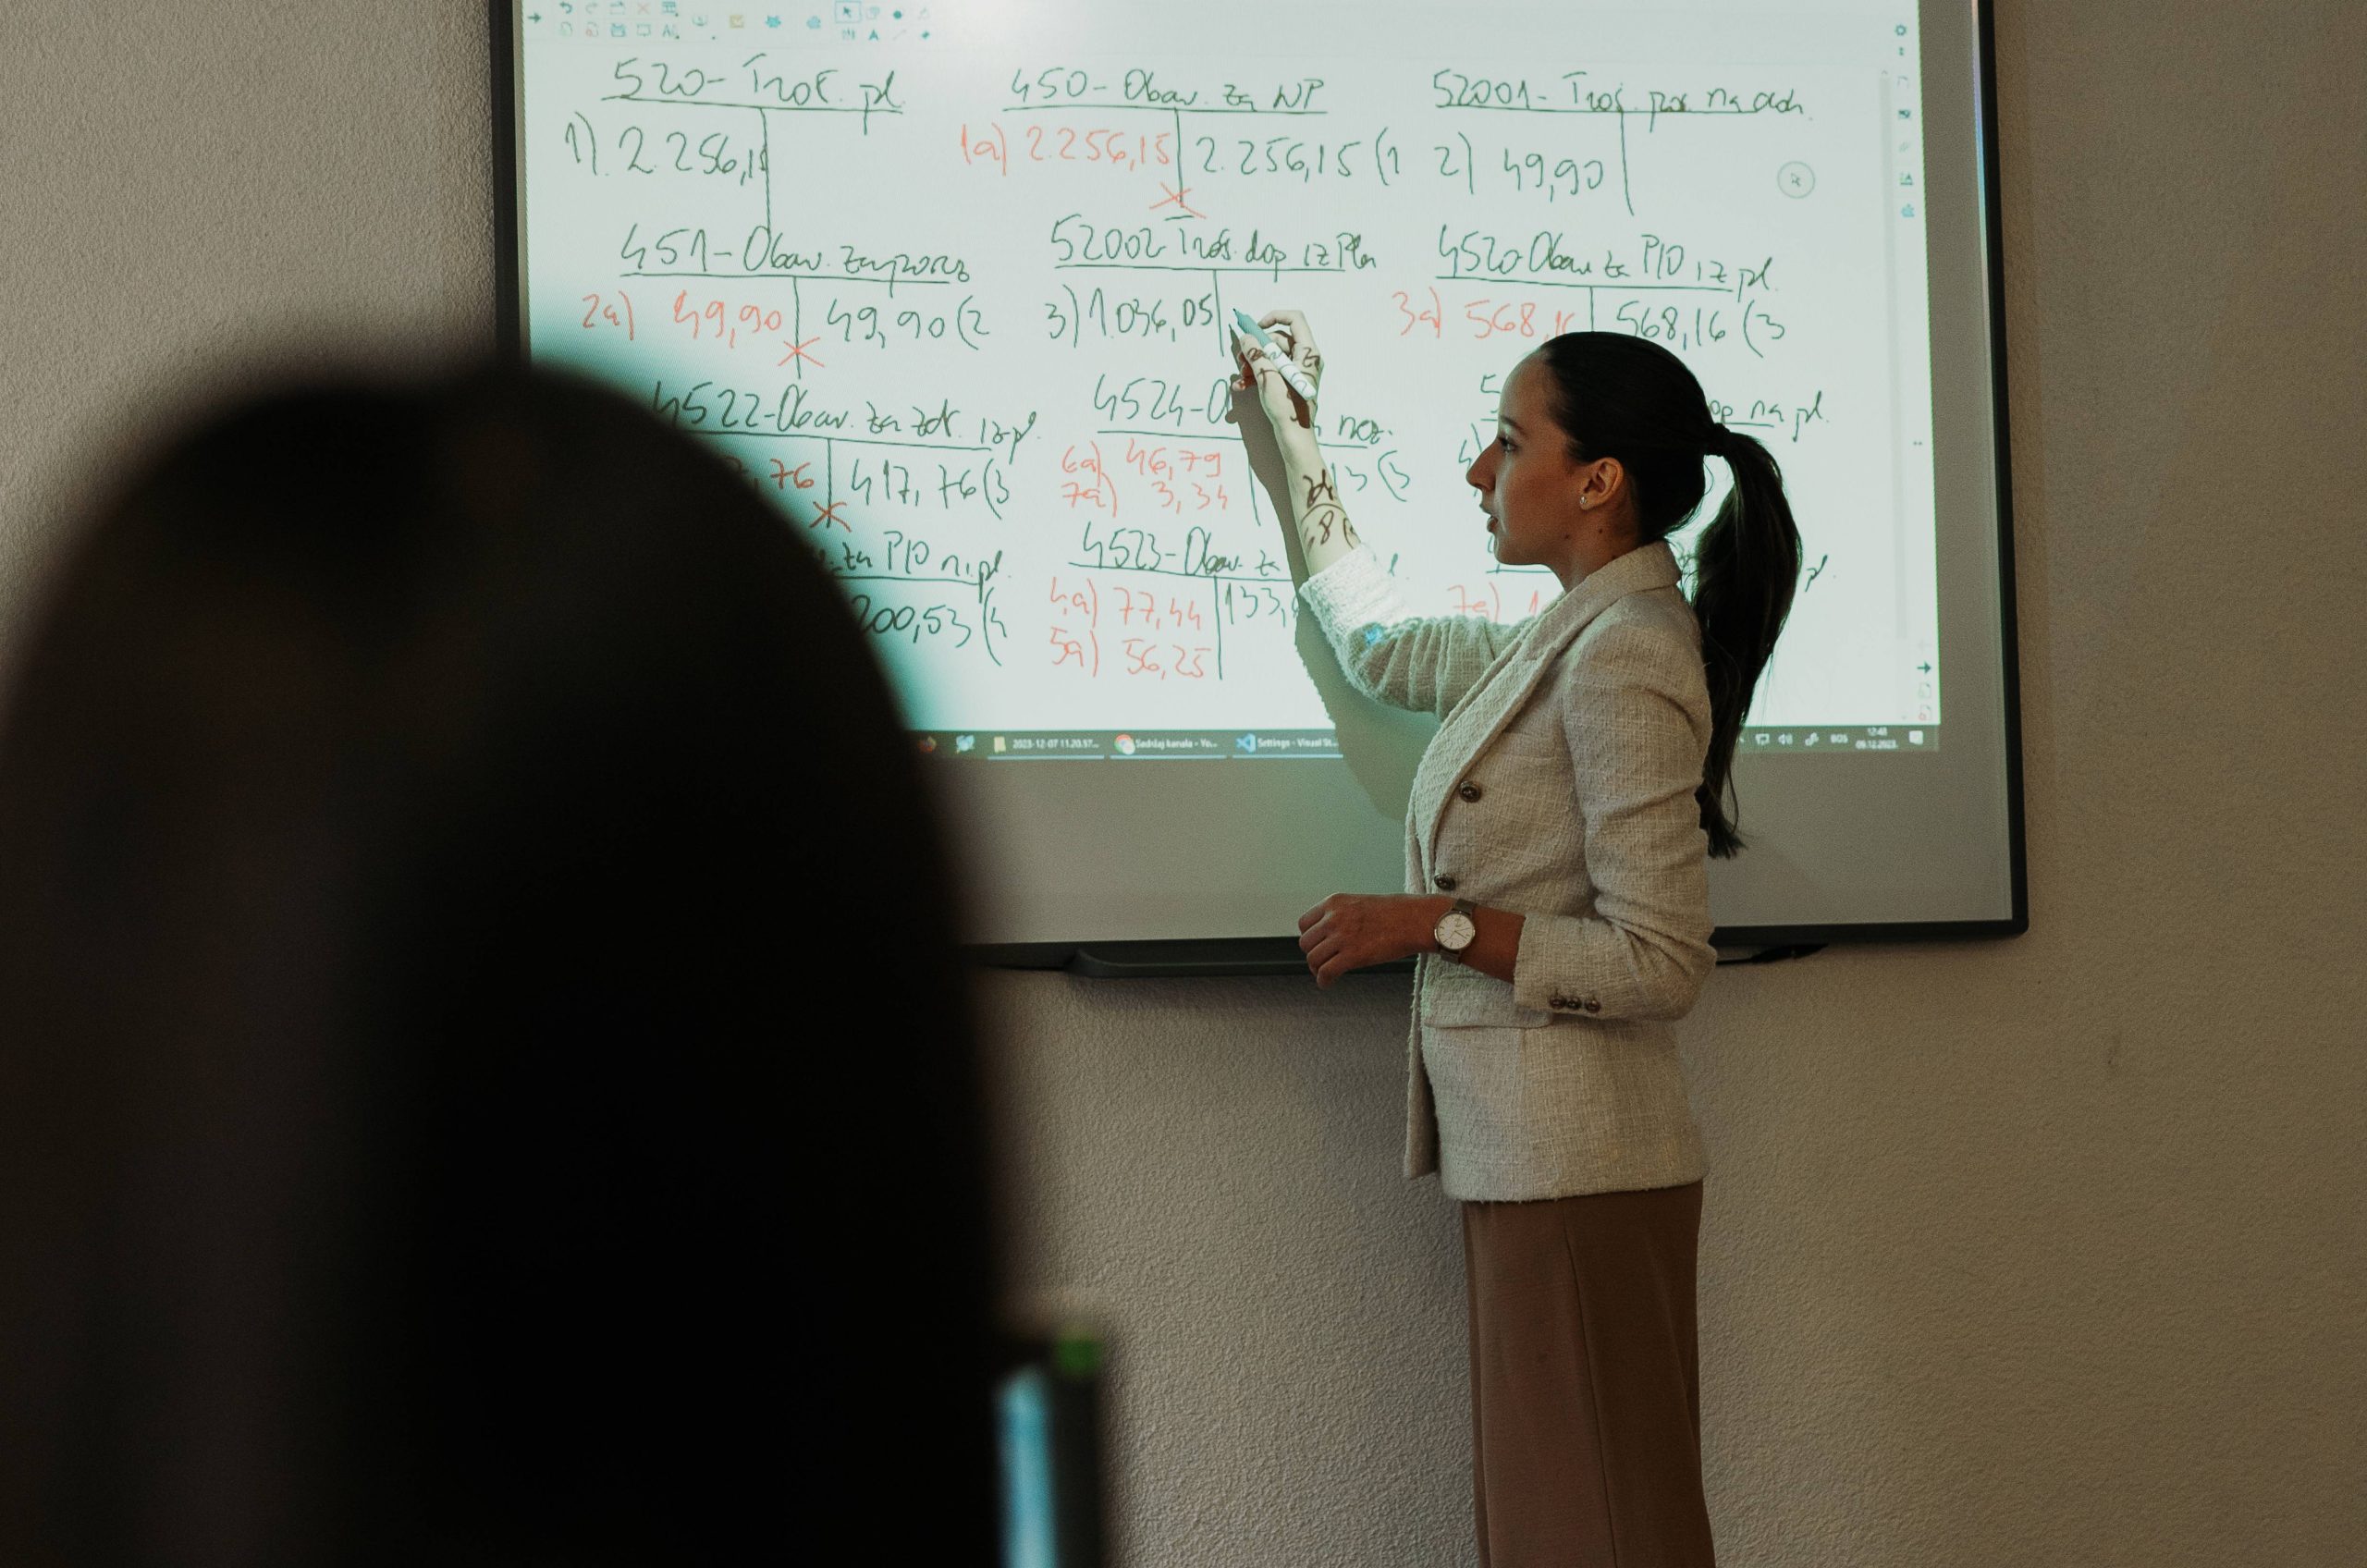 520- Troš. pl. 450- Obav. za NP 52001- Troš. por. na doh.
1) 2.256,15 1a) 2.256,15 2.256,15 (1 2) 49,90
451- Obav. za porez 52002- Troš. dop iz Pla 4520 Obav za PIO iz pl.
2a) 49,90 49,90 (2 3) 1.036,05 3a) 568,16 568,16 (3
4522- Obav. za zdr. iz pl. 4524- O nez. op na pl.
76 417,76 (3 6a) 46,79 3 (3
7a) 3,34
za PIO na pl. 4523- Obav. za
200,53 (4 4a) 77,44 133, 7a) 1
5a) 56,25
2023-12-07 11.20.37... Sadržaj kanala - Yo... Settings - Visual St... BOS 12:48
09.12.2023.